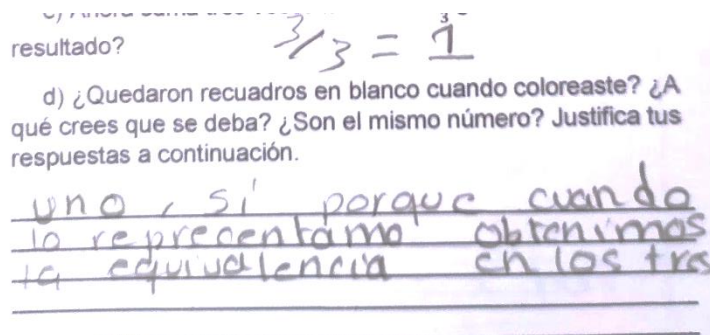 resultado? 3/3 = 1
d) ¿Quedaron recuadros en blanco cuando coloreaste? ¿A
qué crees que se deba? ¿Son el mismo número? Justifica tus
respuestas a continuación.
uno, si porque cuando
lo reprecentamo obtenimos
la equivalencia en los tres